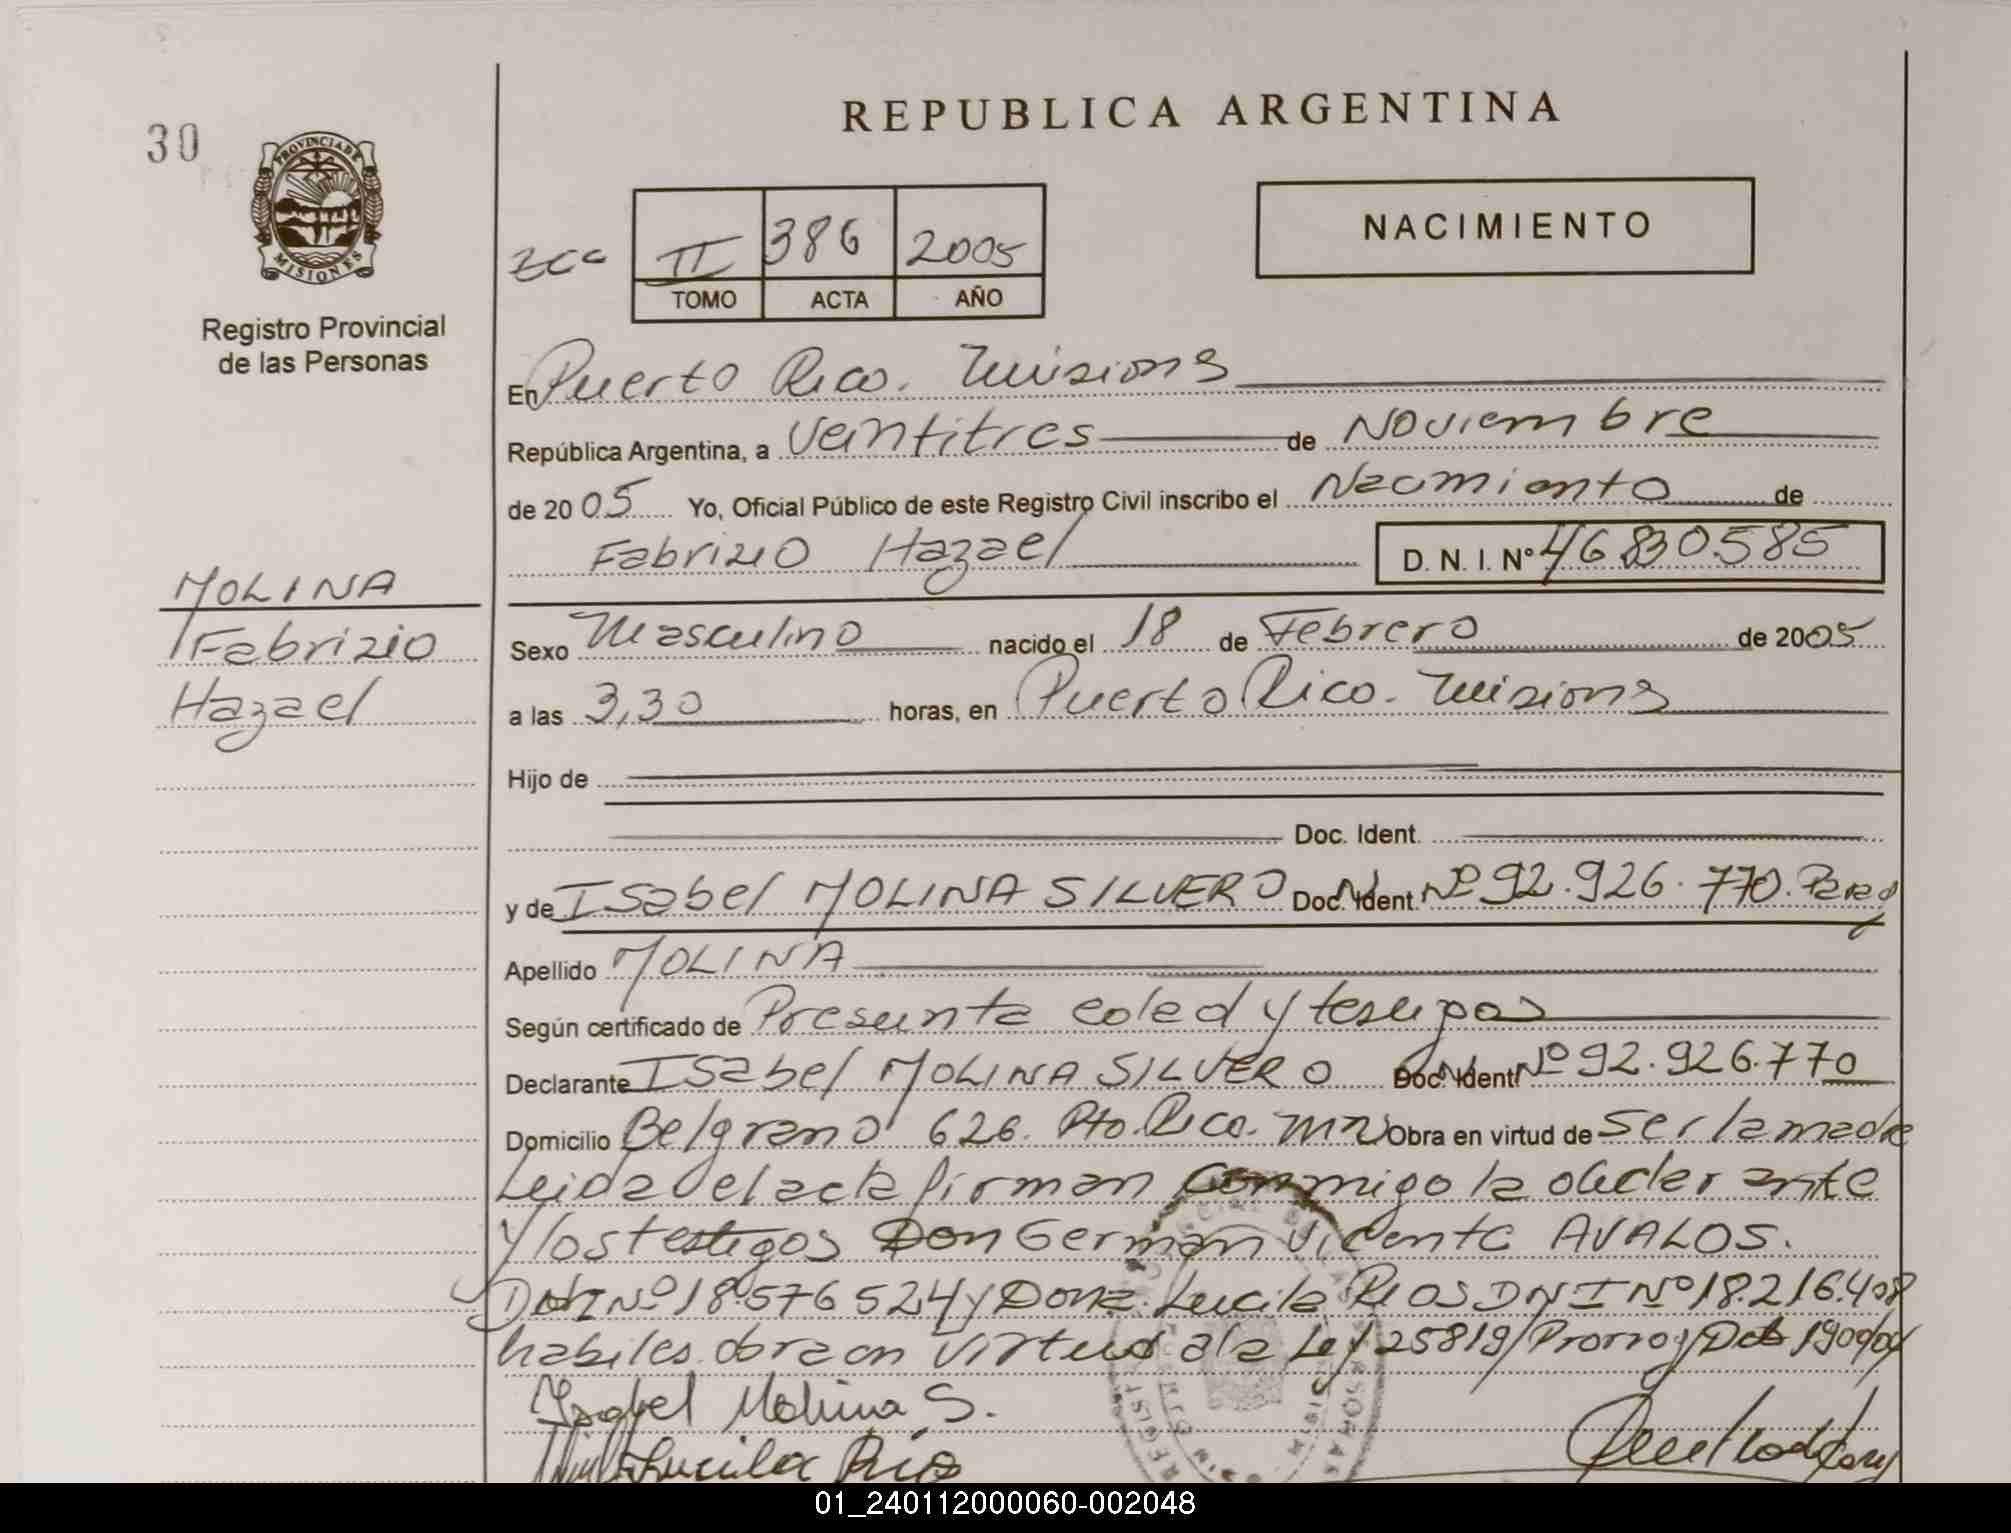 REPUBLICA ARGENTINA
30
PROVINCIA DE
MISIONES
Registro Provincial
de las Personas
II 386 2005
TOMO ACTA AÑO
NACIMIENTO
En Puerto Rico. Misiones
República Argentina, a Veintitres de Noviembre
de 2005 Yo, Oficial Público de este Registro Civil inscribo el Nacimiento de
Fabrizio Hazael D. N. I. N° 46830585
MOLINA
Fabrizio
Hazael
Sexo Masculino nacido el 18 de Febrero de 2005
a las 3,30 horas, en Puerto Rico. Misiones
Hijo de
Doc. Ident.
y de Isabel MOLINA SILVERO Doc. Ident. Nº 92.926.770. Parag
Apellido MOLINA
Según certificado de Presunta edad y testigos
Declarante Isabel MOLINA SILVERO Doc. Ident. Nº 92.926.770
Domicilio Belgrano 626. Pto. Rico. Mnes Obra en virtud de ser la madre
Leida el acta firman conmigo la declarante
y los testigos Don German Vicente AVALOS.
DNI Nº 18.576524 y Doña Lucila RIOS DNI Nº 18.216.408
habiles. obra en virtud a la Ley 25819/Prorrog/Dcto 1900/04
Isabel Molina S.
Lucila Ríos
01_240112000060-002048